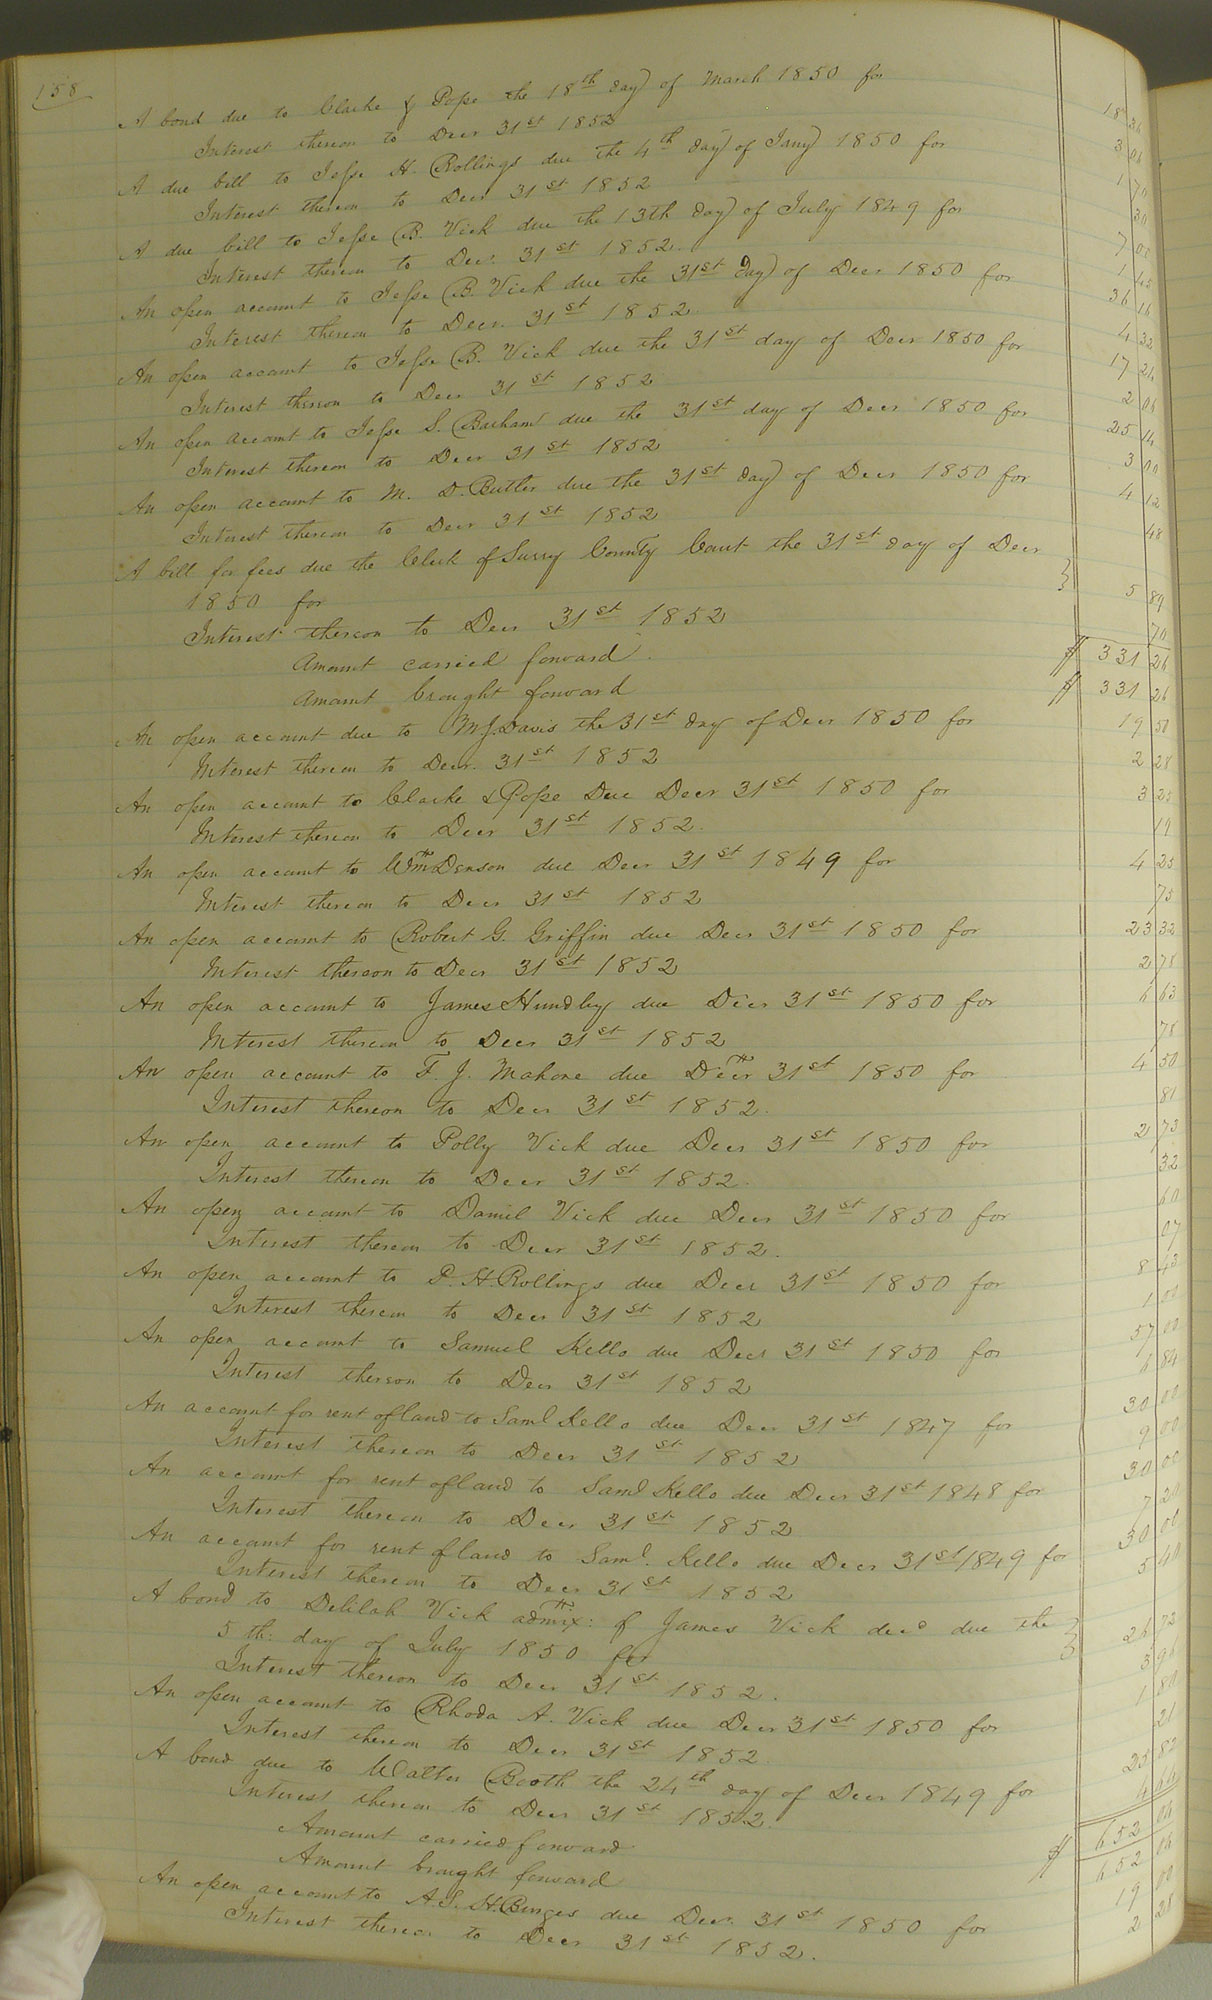 158
A bond due to Clarke & Pope the 18th day of March 1850 for 18 36
Interest thereon to Decr 31st 1852 3 06
A due bill to Jesse H. Rollings due the 4th day of Jany 1850 for 1 70
Interest thereon to Decr 31st 1852 30
A due bill to Jesse B. Vick due the 13th day of July 1849 for 7 00
Interest thereon to Decr. 31st 1852. 1 45
An open account to Jesse B. Vick due the 31st day of Decr 1850 for 36 16
Interest thereon to Decr. 31st 1852. 4 32
An open account to Jesse B. Vick due the 31st day of Decr 1850 for 17 26
Interest thereon to Decr 31st 1852 2 06
An open account to Jesse S. Barham due the 31st day of Decr 1850 for 25 14
Interest thereon to Decr 31st 1852 3 00
An open account to M. D. Butler due the 31st day of Decr 1850 for 4 12
Interest thereon to Decr 31st 1852 48
A bill for fees due the Clerk of Surry County Court the 31st day of Decr
1850 for 5 89
Interest thereon to Decr 31st 1852 70
Amount carried forward. $ 331 26
Amount brought forward $ 331 26
An open account due to M J. Davis the 31st day of Decr 1850 for 19 50
Interest thereon to Decr. 31st 1852 2 28
An open account to Clarke & Pope Due Decr 31st 1850 for 3 25
Interest thereon to Decr 31st 1852. 19
An open account to Wm Denson due Decr 31st 1849 for 4 25
Interest thereon to Decr 31st 1852 75
An open account to Robert G. Griffin due Decr 31st 1850 for 23 32
Interest thereon to Decr 31st 1852 2 78
An open account to James Hundley due Decr 31st 1850 for 6 63
Interest thereon to Decr 31st 1852 78
An open account to T. J. Mahone due Decr 31st 1850 for 4 50
Interest thereon to Decr 31st 1852. 81
An open account to Polly Vick due Decr 31st 1850 for 2 73
Interest thereon to Decr 31st 1852. 32
An open account to Daniel Vick due Decr 31st 1850 for 60
Interest thereon to Decr 31st 1852. 07
An open account to P. H. Rollings due Decr 31st 1850 for 8 43
Interest thereon to Decr 31st 1852 1 00
An open account to Samuel Kello due Decr 31st 1850 for 57 00
Interest thereon to Decr 31st 1852 6 84
An account for rent of land to Saml Kello due Decr 31st 1847 for 30 00
Interest thereon to Decr 31st 1852 9 00
An account for rent of land to Saml Kello due Decr 31st 1848 for 30 00
Interest thereon to Decr 31st 1852 7 20
An account for rent of land to Saml. Kello due Decr 31st 1849 for 30 00
Interest thereon to Decr 31st 1852 5 40
A bond to Delilah Vick admix: of James Vick decd due the
5th: day of July 1850 for 26 73
Interest thereon to Decr 31st 1852. 3 96
An open account to Rhoda A. Vick due Decr 31st 1850 for 1 80
Interest thereon to Decr 31st 1852. 21
A bond due to Walter Booth the 24th day of Decr 1849 for 25 82
Interest thereon to Decr 31st 1852. 4 64
Amount carried forward $ 652 06
Amount brought forward 652 06
An open account to A. S. H. Burges due Decr. 31st 1850 for 19 00
Interest thereon to Decr 31st 1852. 2 28